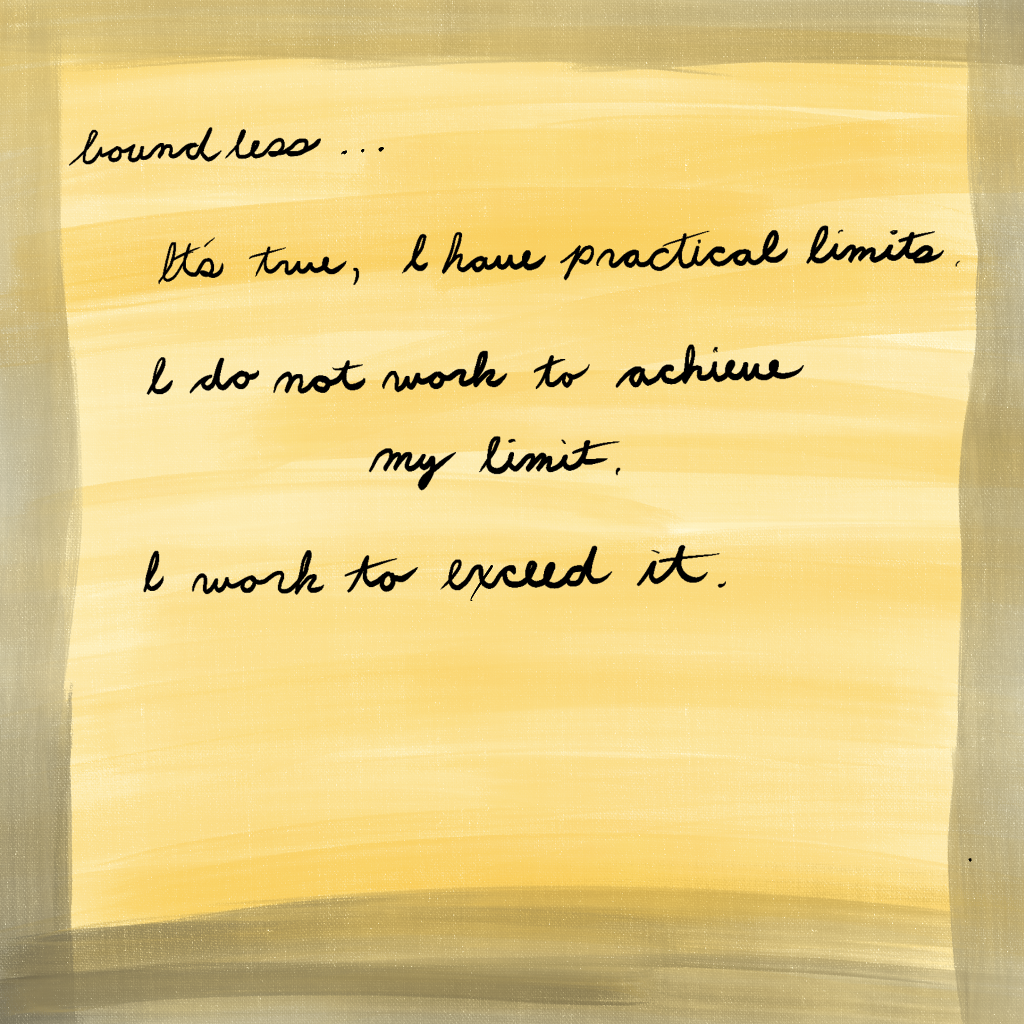 boundless ...
It's true, I have practical limits.
I do not work to achieve
my limit.
I work to exceed it.